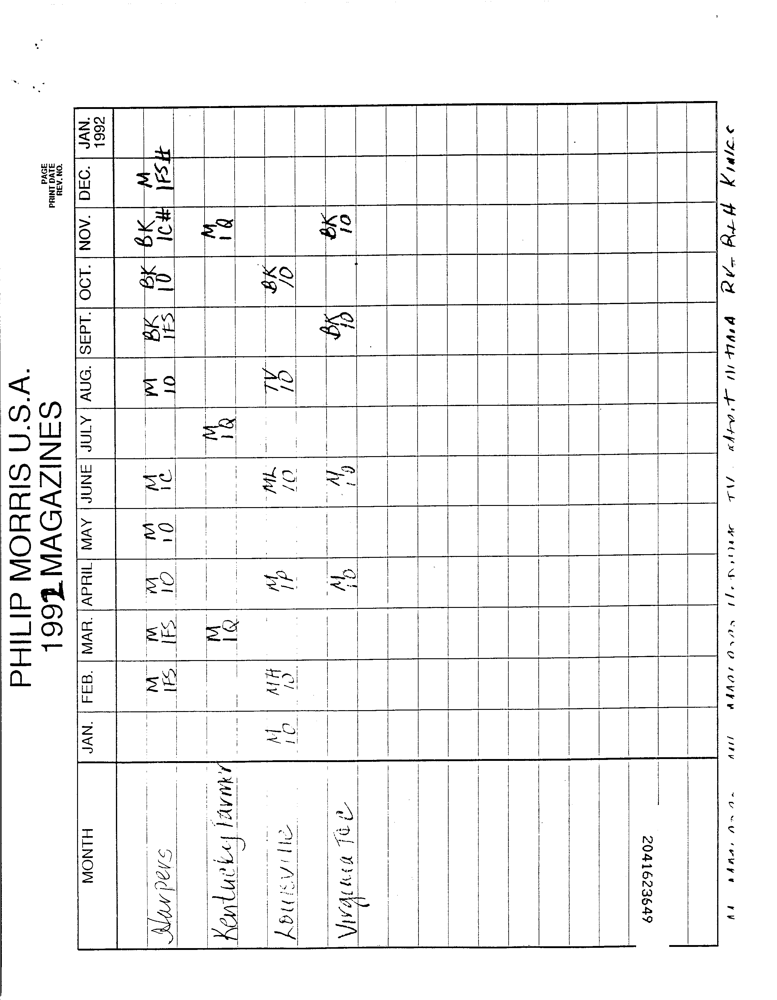 PHILIP MORRIS U.S.A.
1992 MAGAZINES
PAGE
PRINT DATE
REV. NO.
MONTH JAN. FEB. MAR. APRIL MAY JUNE JULY AUG. SEPT. OCT. NOV. DEC. JAN. 1992
Harpers M 1FS M 1FS M 10 M 10 M 1C M 10 BK 1FS BK 10 BK 1C# M 1FS#
Kentucky Farmer M 1Q M 1Q M 1Q
Louisville M 10 MH 10 M 1P ML 10 TV 10 BK 10
Virginia Tec M 10 M 10 BK 10 BK 10
2041623649
TV BK- B&H Kings